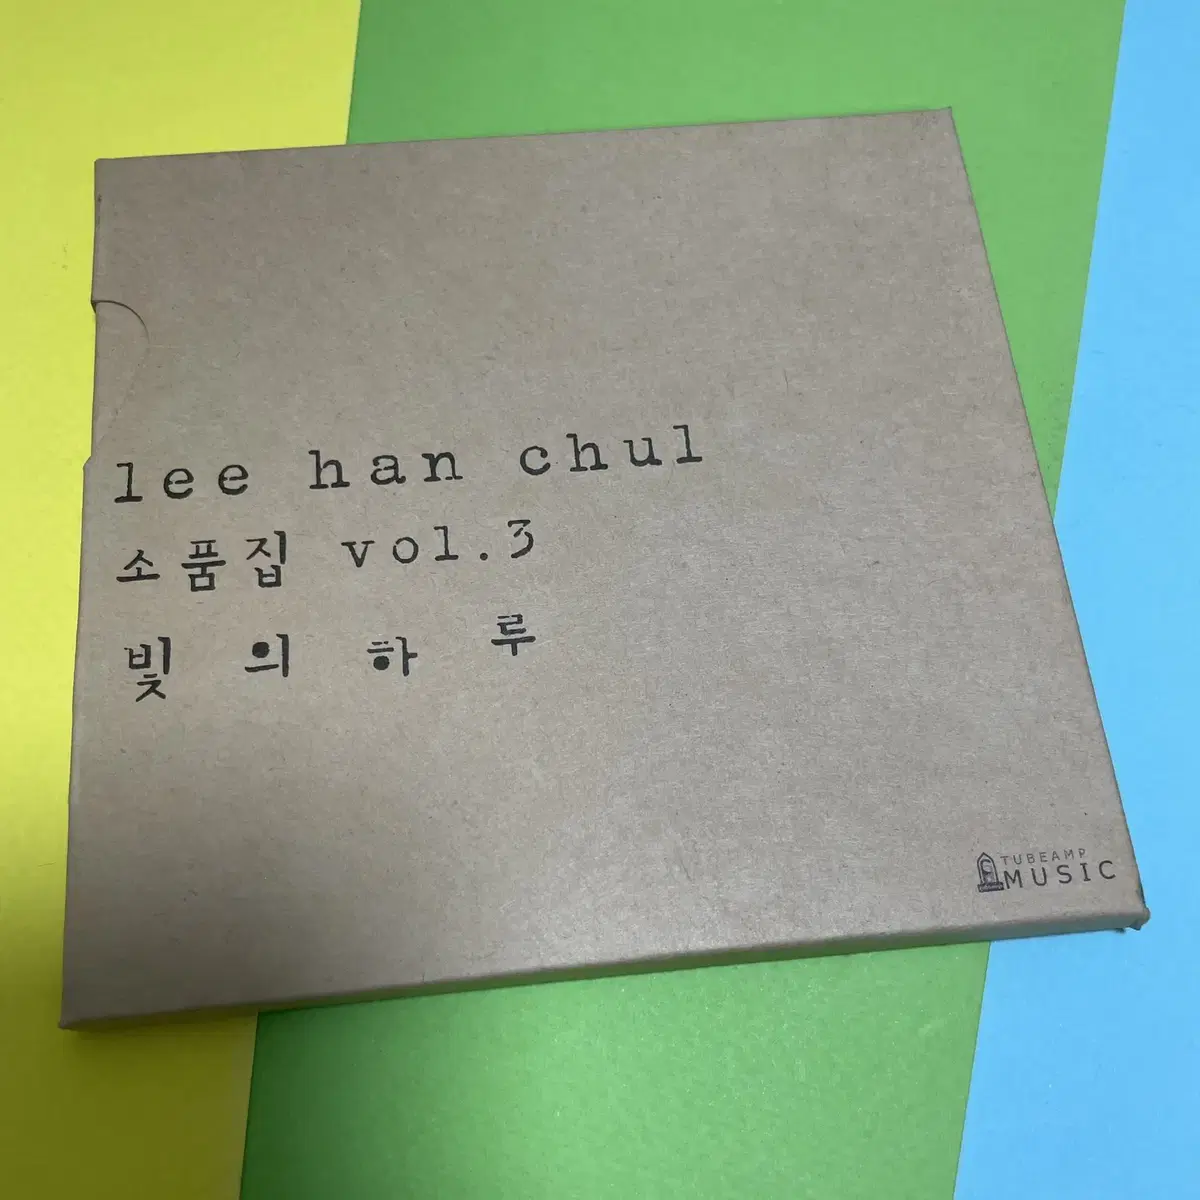 lee han chul
소품집 vol.3
빛의하루
TUBEAMP
MUSIC